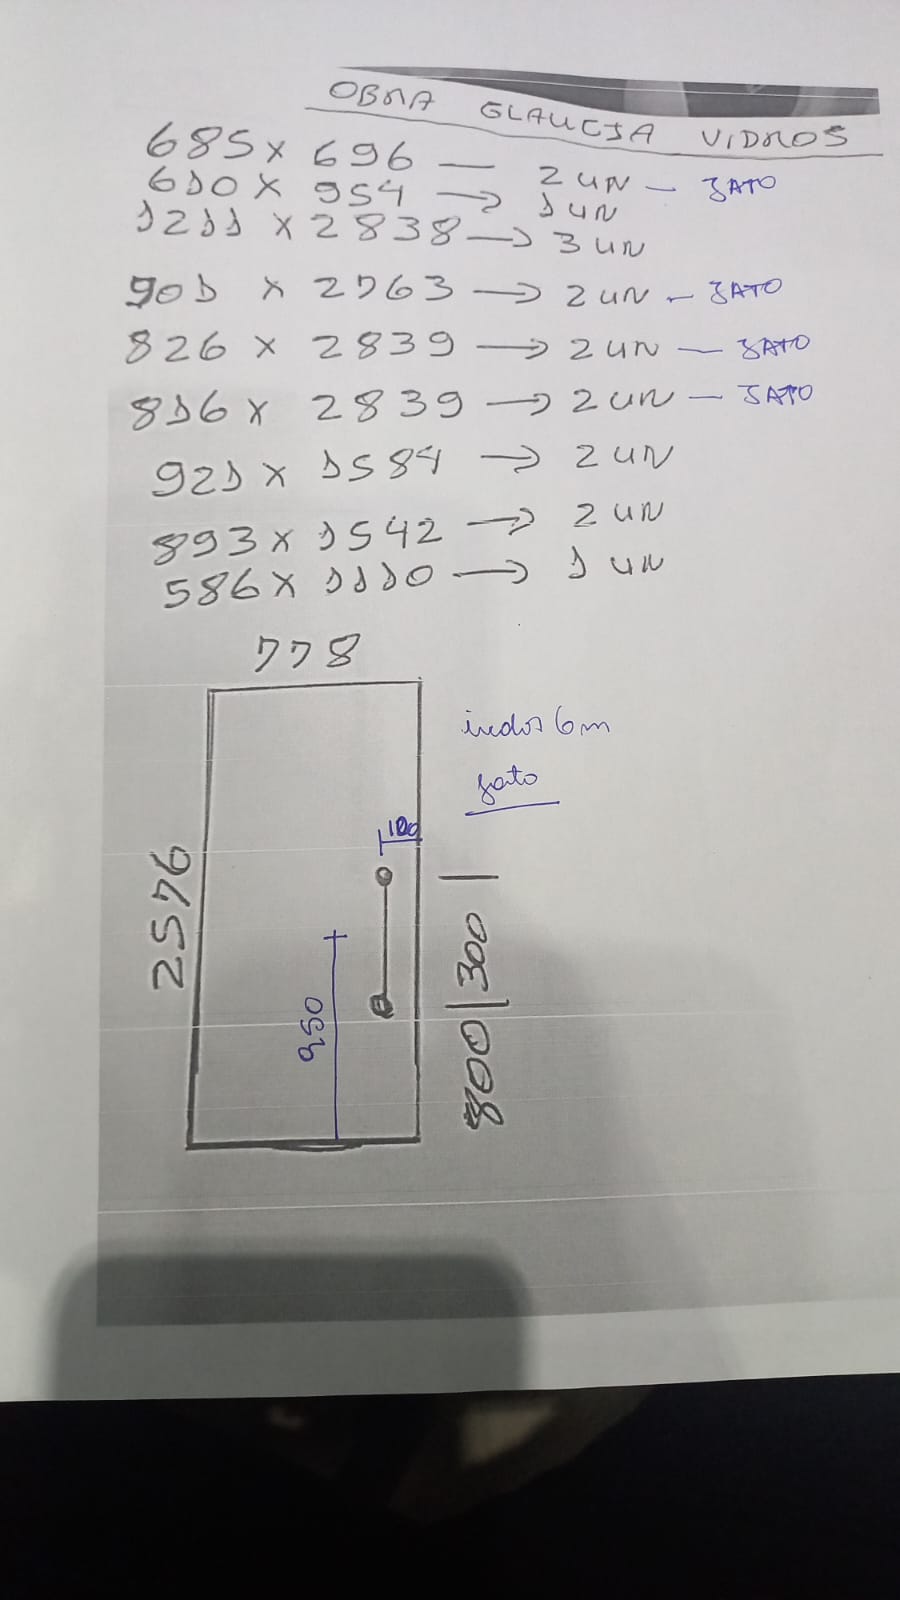 OBRA GLAUCIA VIDROS
685 x 696 — 2 UN — JATO
610 x 954 → 1 UN
1211 x 2838 → 3 UN
901 x 2163 → 2 UN — JATO
826 x 2839 → 2 UN — JATO
816 x 2839 → 2 UN — JATO
921 x 1584 → 2 UN
893 x 1542 → 2 UN
586 x 1110 → 1 UN
778
6m
jato
100
2576
950
800 | 300 |